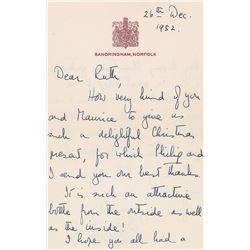 26th Dec.
1952.
SANDRINGHAM, NORFOLK
Dear Ruth
How very kind of you
and Maurice to give us
such a delightful Christmas
present, for which Philip and
I send you our best thanks.
It is such an attractive
bottle from the outside as well
as the inside!
I hope you all had a